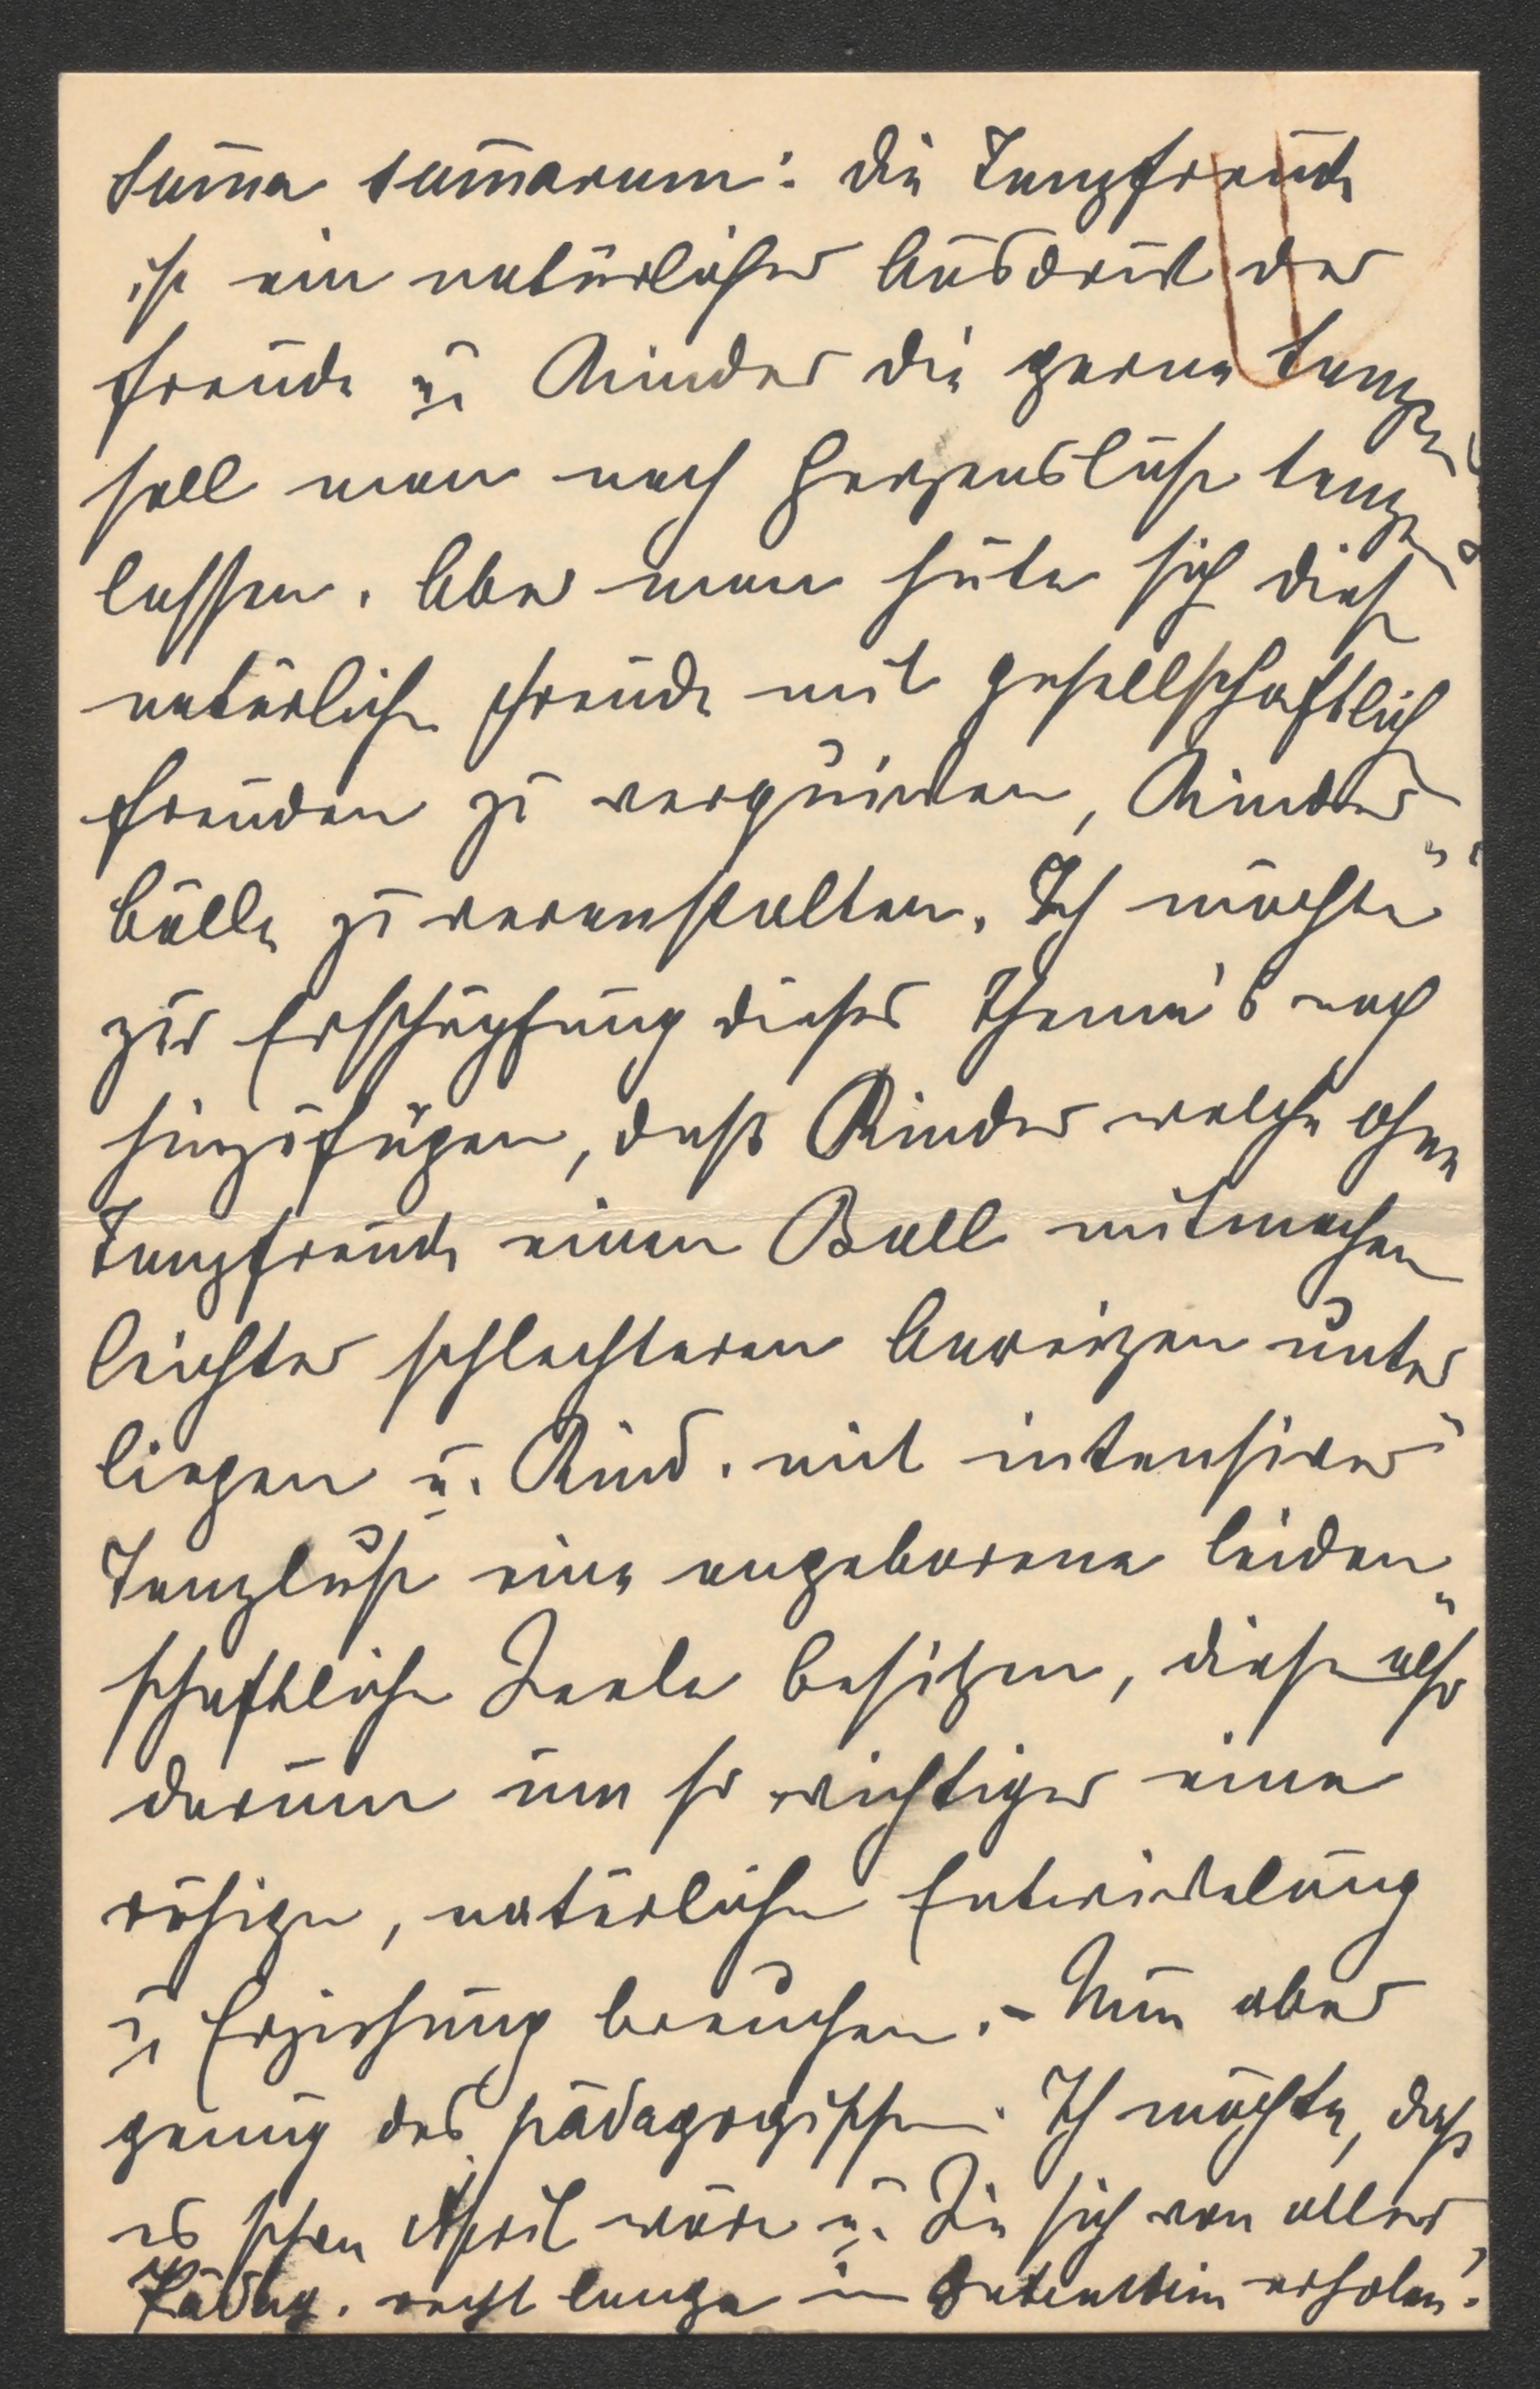 Suma̅ sumarum̅: die Tanzfreude
ist ein natürlicher Ausdruck der
Freude u. Kinder die gerne tanzen
soll man nach Herzenslust tanzen
lassen. Aber man hüte sich diese
natürliche Freude mit gesellschaftlich
Freuden zu verquicken, Kinder-
bälle zu veranstalten. Ich möchte
zur Erschöpfung dieses Thema's noch
hinzufügen, daß Kinder welche ohne
Tanzfreude einen Ball mitmachen
leichter schlechteren Anreizen unter
liegen u. Kind. mit intensiver
Tanzlust eine angeborene leiden-
schaftliche Seele besitzen, diese also
darum um so wichtiger eine
ruhige, natürliche Entwickelung
u. Erziehung brauchen. – Nun aber
genug des pädagogischen. Ich möchte, daß
es schon April wäre u. Sie sich von aller
Pädag. recht lange in erholen.